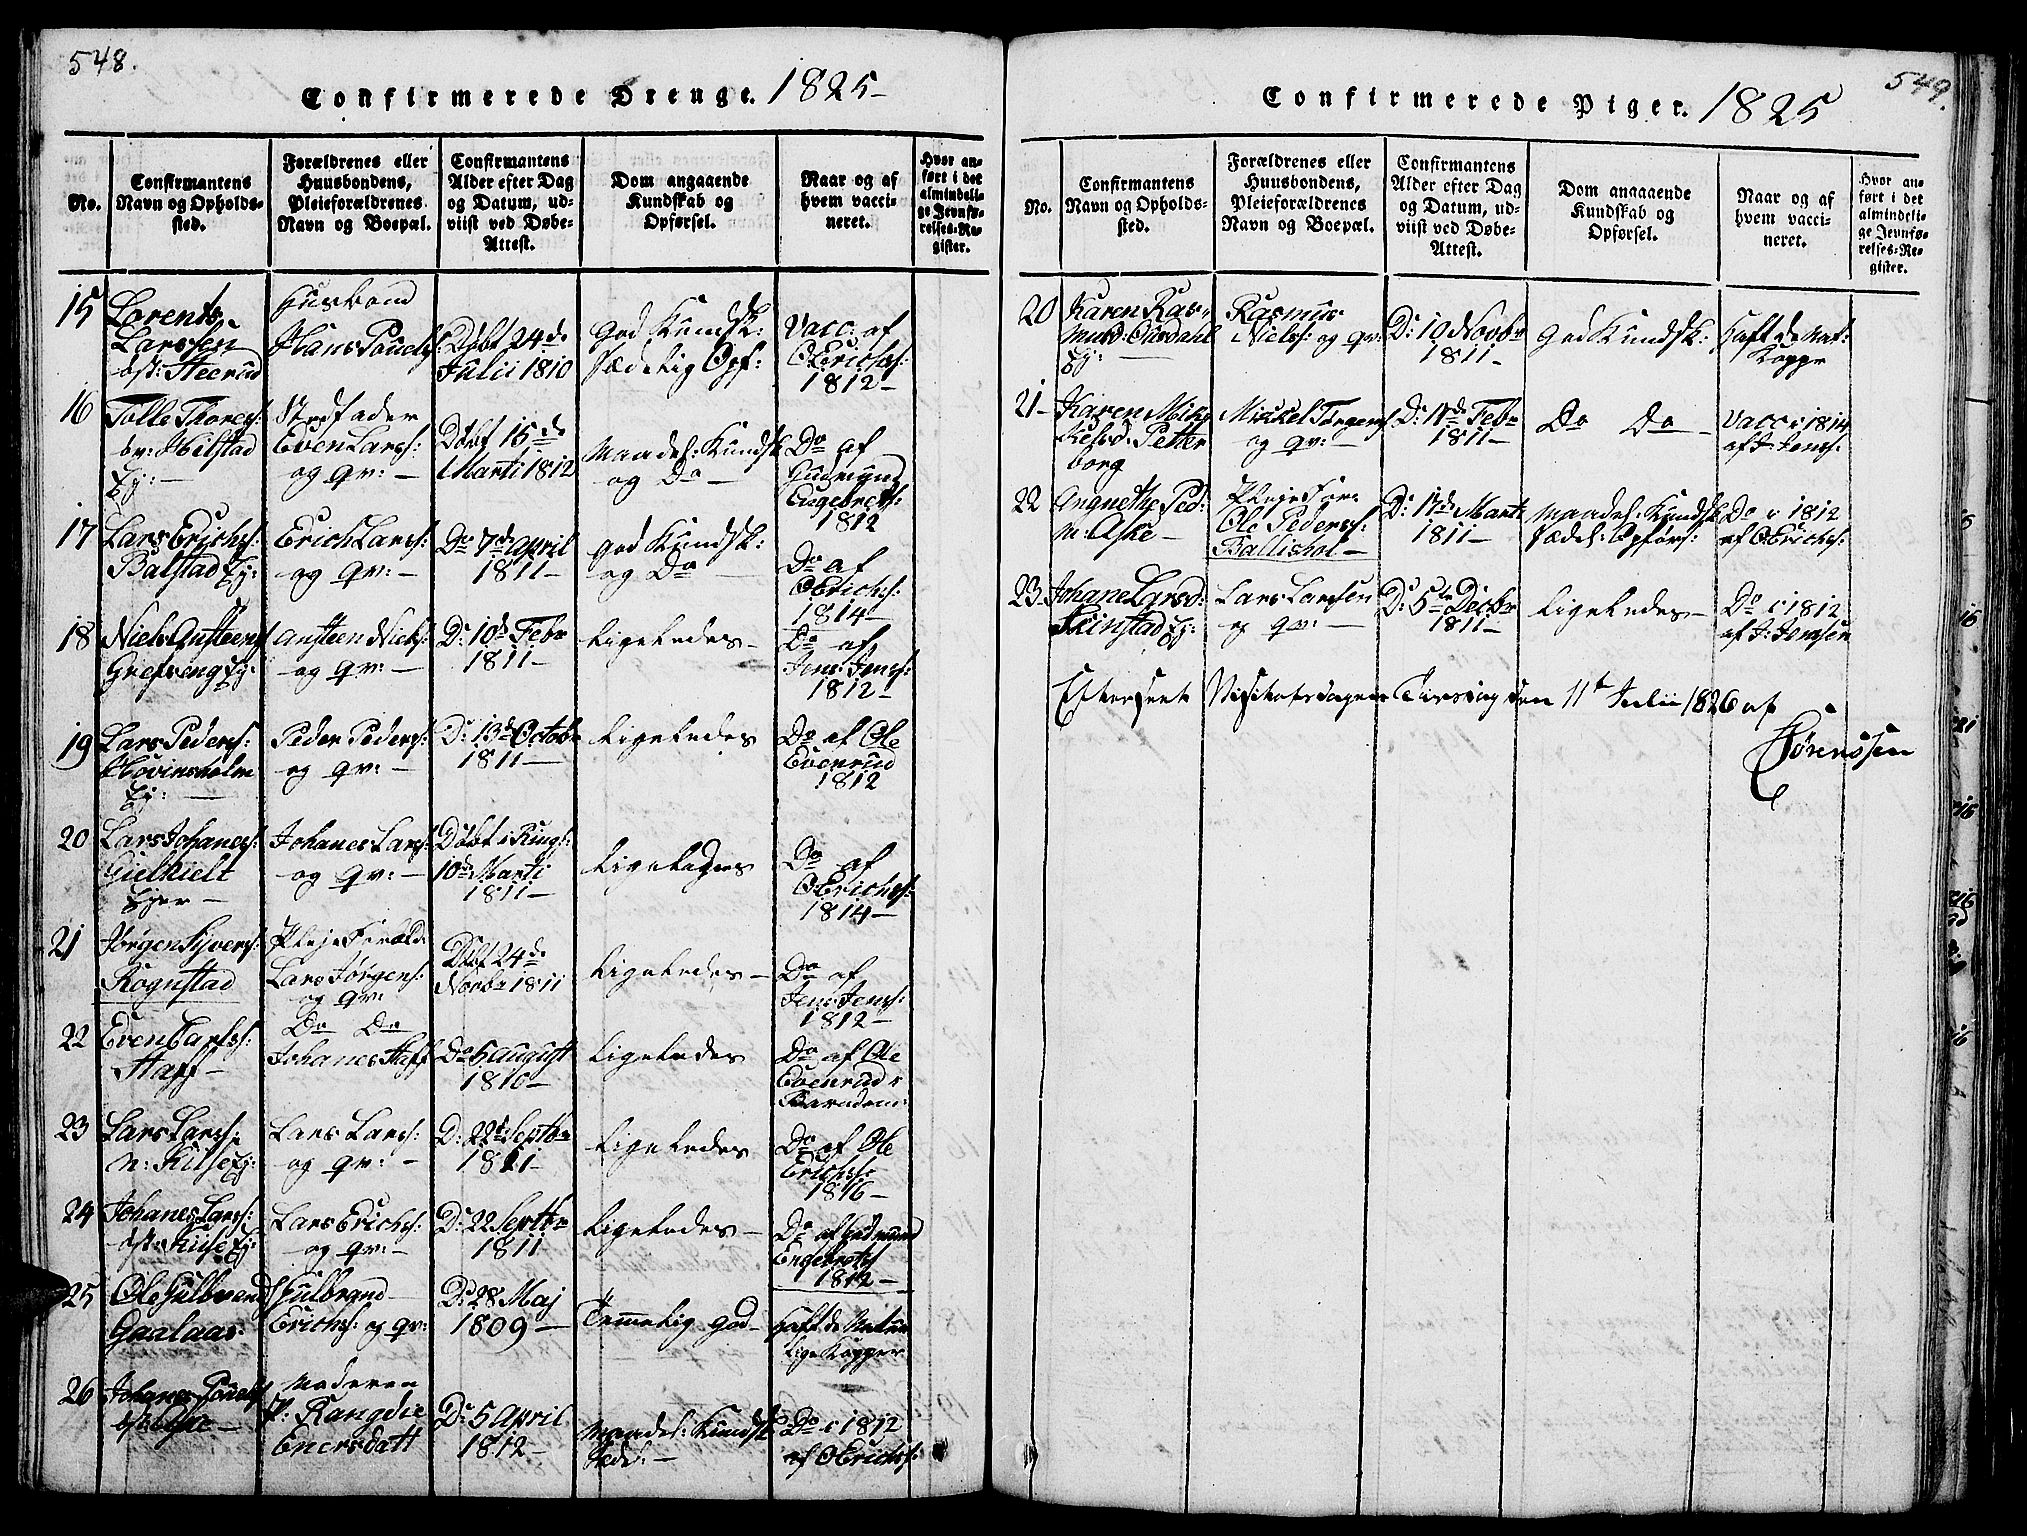 548.
Confirmerede Drenge. 1825-
No.
Confirmantens
Navn og Opholds-
sted.
Forældrenes eller
Huusbondens,
Pleieforældrenes
Navn og Boepæl.
Confirmantens
Alder efter Dag
og Datum, ud-
viist ved Døbe-
Attest.
Dom angaaende
Kundskab og
Opførsel.
Naar og af
hvem vacci-
neret.
Hvor an-
ført i det
almindeli-
ge Jevnfø-
relses-Re-
gister.
15
Lorents
Larssen
øst: Heerud
Husbond
Hans Pouels:
Døbt 24de
Julii 1810
God Kundsk:
sædelig Opf:
Vacc: af
O Erichs:
1812-
16
Tolle Thores:
Hilstad
Ej: -
Stedfader
Even Lars:
og qv: -
Døbt 15de
Marti 1812
Maadel: Kundsk
og Do -
Do af
Gudmund
Engebrets:
1812
17
Lars Erichs:
Balstad Ej:
Erich Lars:
og qv: -
Do 7de April
1811-
god Kundsk:
og Do
Do af
O Erichs:
1814-
18
Niels Ansteens
Grefseng Ej:
Ansteen Niels:
og qv: -
Do 10de Febr
1811-
Ligeledes-
Do af
Jens Jens:
1812-
19
Lars Peders:
Hovinsholm
Ej: -
Peder Peders:
og qv: -
Do 13de Octobr
1811-
Ligeledes
Do af Ole
Evenrud
1812
20
Lars Johanes:
Gielhielt
Ejer -
Johanes Lars:
og qv: -
Døbt i Rings:
10de Marti
1811-
Ligeledes
Do af
O Erichs:
1814-
21
Jørgen Syvers:
Rognstad
Pleje Foræld:
Lars Jørgens:
og qv:
Døbt 24de
Novbr 1811
Ligeledes-
Do af
Jens Jens:
1812-
22
Even Carls:
Staff-
Do Do
Johanes Staff
Do 5 August
1810-
Ligeledes
Do af Ole
Evenrud i
Barndom:
23
Lars Lars:
n: Kilse Ej:
Lars Lars:
og qv: -
Do 22de Septbr
1811-
Ligeledes
Do af Ole
Erichs:
1816-
24
Johanes Lars:
øst: Kilse Ej:
Lars Erichs:
og qv: -
Do 22 Septbr
1811
Ligeledes-
Do af Gudmund
Engebrets
1812-
25
Ole Gulbrand
Gaalaas
Gulbrand
Erichs: og qv:
Do 28 Maj
1809-
Temmelig god-
Haft de Natur
lige Kopper
26
Johanes Pouels
øst: Aske-
Moderen
P: Rangdie
Enersdatt
Do 5 April
1812-
Maadel: Kundsk
sædel: -
Do i 1812
af O Erichs:
549.
Confirmerede Piger. 1825
No.
Confirmantens
Navn og Opholds-
sted.
Forældrenes eller
Huusbondens,
Pleieforældrenes
Navn og Boepæl.
Confirmantens
Alder efter Dag
og Datum, ud-
viist ved Døbe-
Attest.
Dom angaaende
Kundskab og
Opførsel.
Naar og af
hvem vacci-
neret.
Hvor an-
ført i det
almindeli-
ge Jevnfø-
relses-Re-
gister.
20
Karen Ras-
musd:
Ej:
Rasmus
Niels: og qv:
Do 10 Novbr
1811-
god Kundsk:
Haft de Nat:
Kopper
21-
Karen Mik-
kelsd: Petter
borg
Mickel Jørgens
og qv: -
Do 11de Febr
1811-
Do Do -
Vacc: 1814
af J: Jens:
22
Angnethe Ped:
n: Aske-
Pleje For:
Ole Peders:
Ballishol-
Do 17de Marti
1811-
Maadel: Kundsk
sædel: Opførs:
Do i 1812
af O Erichs:
23
Johane Larsd:
Skinstad Ej:
Lars Larssen
og qv: -
Do 5te Decbr
1811-
Ligeledes-
Do i 1812
af J: Jenssen
Efterseet Visitatsdagen Tirsdag den 11te Julii 1826 af
Sørenssen